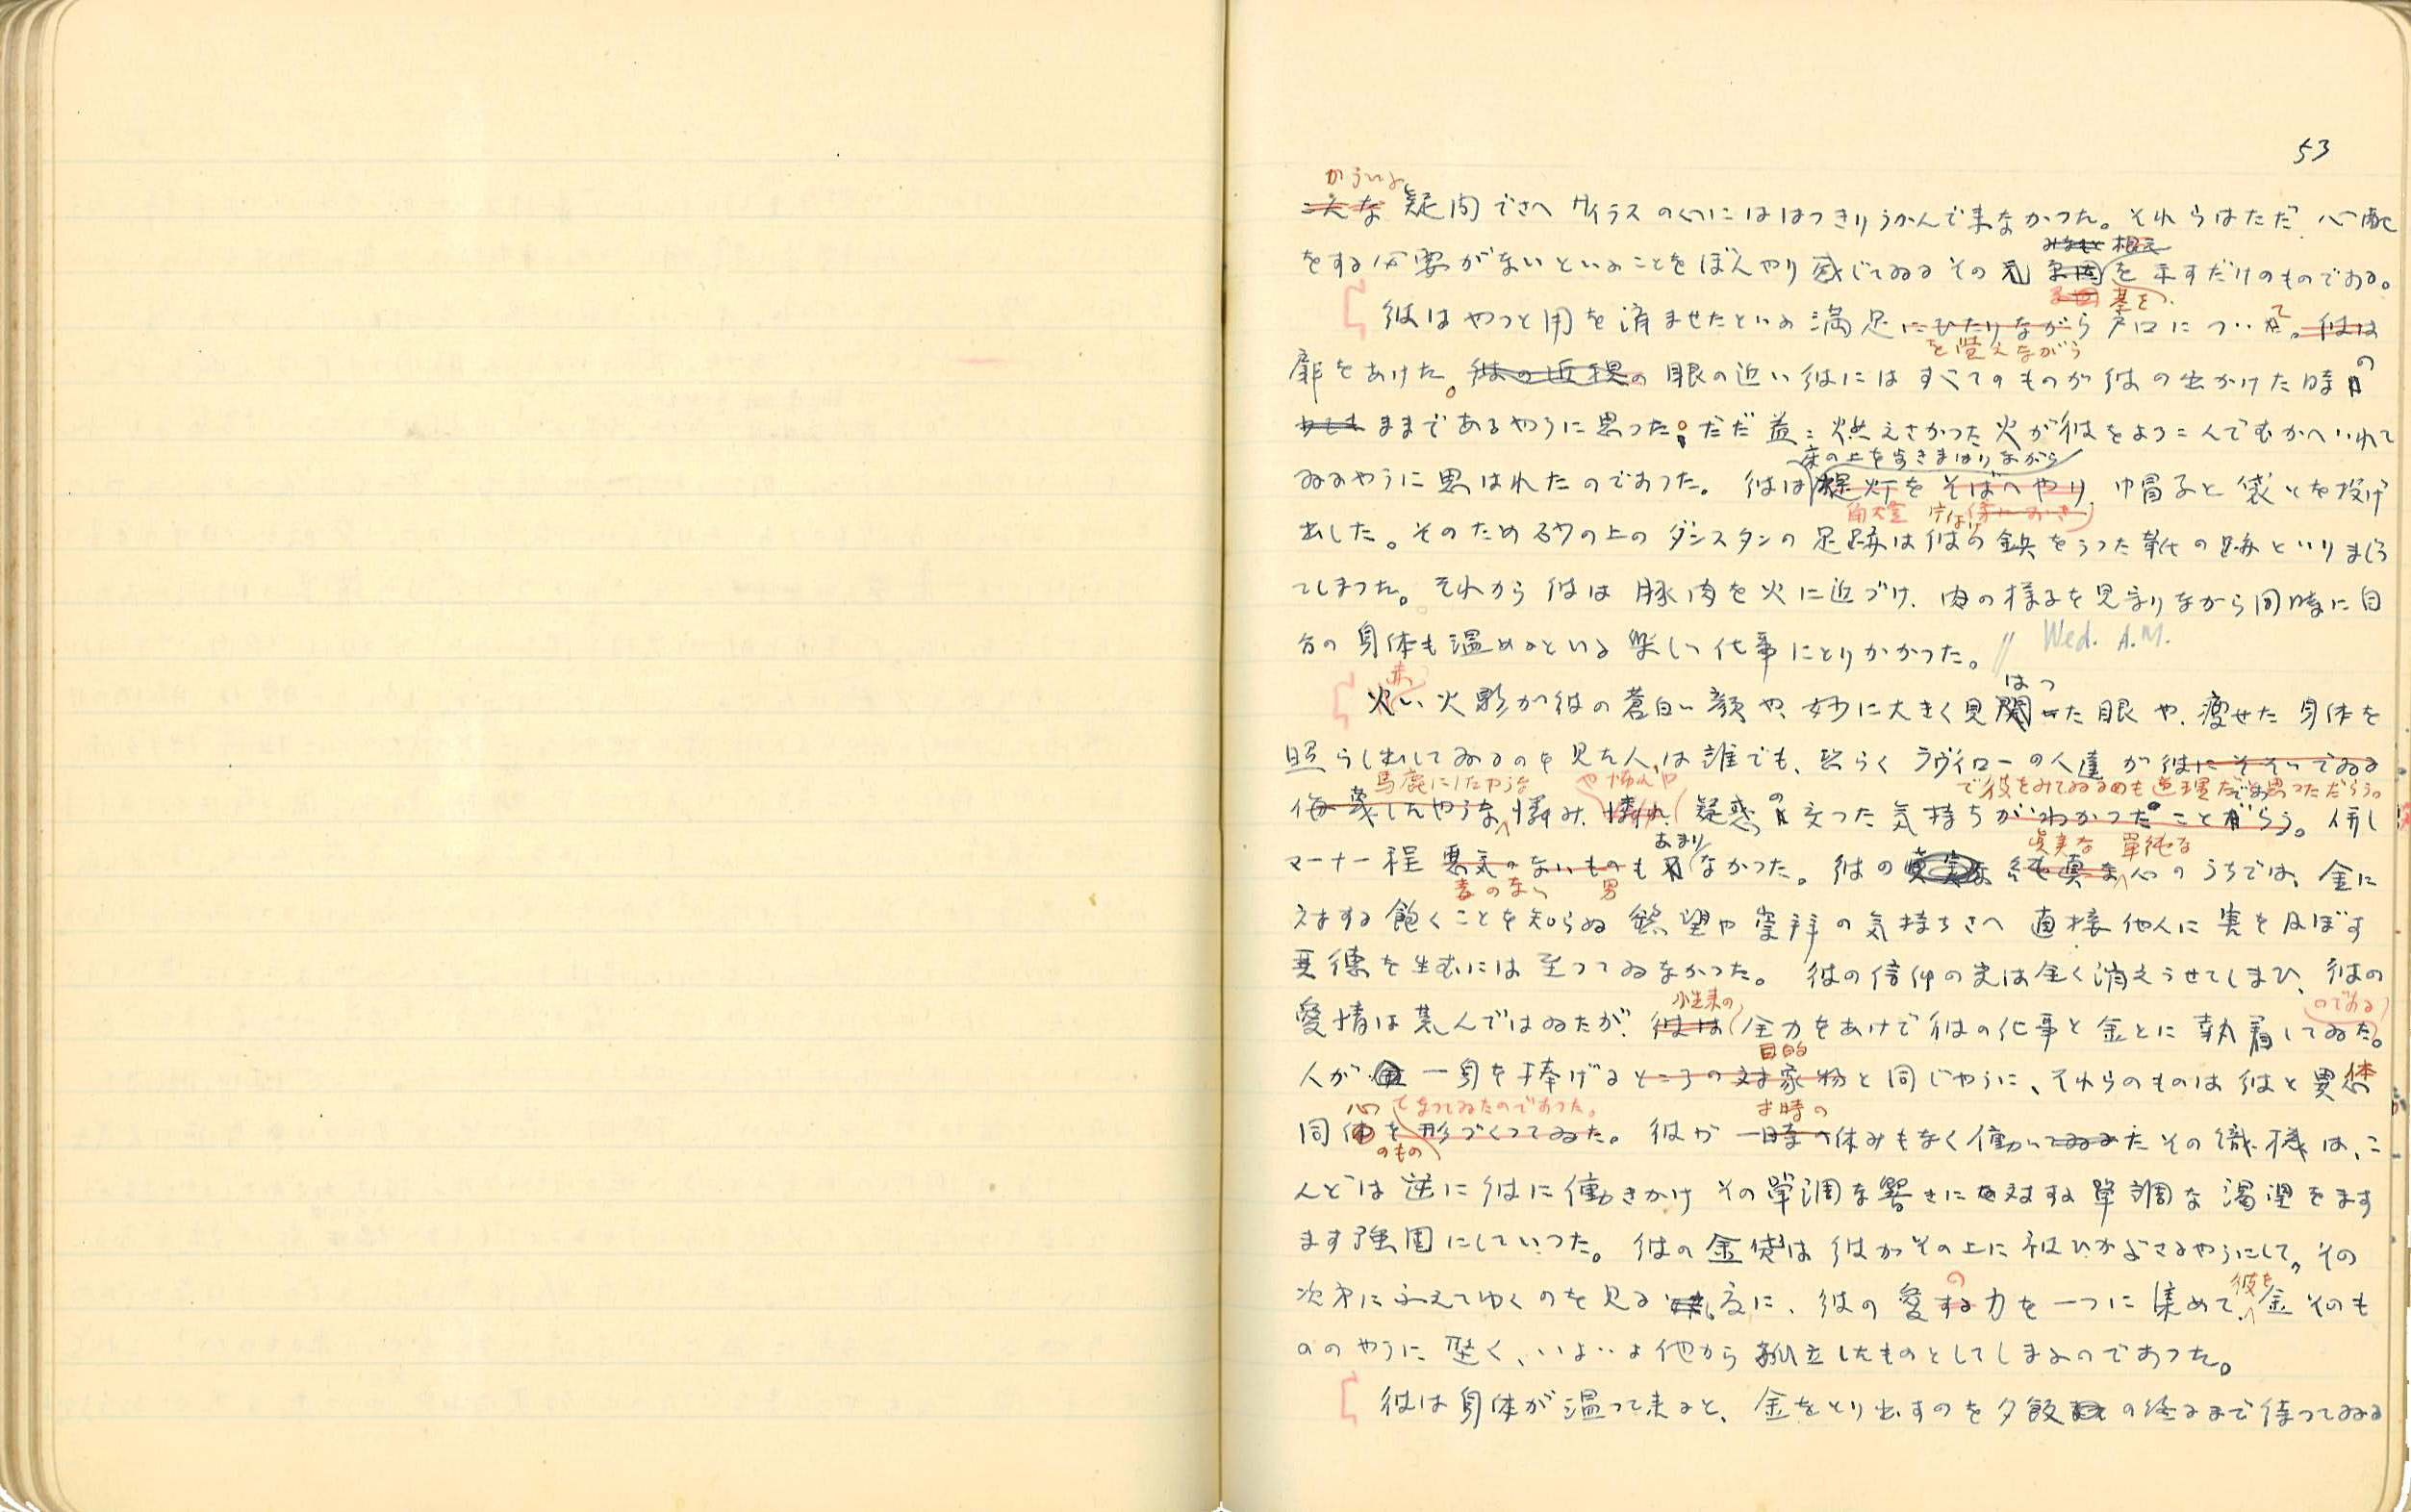 53
かういふ
こんな 疑問でさへサイラスの心にははつきりうかんで来なかつた。それらはただ、心配
みなもと 根元
をする必要がないといふことをぼんやり感じてゐるその 原因を示すだけのものである。
基を
彼はやつと用を済ませたといふ満足にひたりながら戸口についた。彼は
て
を覚えながら
扉をあけた。彼の近視の 眼の近い彼にはすべてのものが彼の出かけた時
の
ままであるやうに思つた。ただ益々燃えさかつた火が彼をよろこんでむかへいれて
床の上を歩きまはりながら
ゐるやうに思はれたのであつた。彼は提灯をそばへやり、帽子と袋とを投げ
角燈 傍におき
出した。そのため砂の上のダンスタンの足跡は彼の鋲をうつた靴の跡といりまじつ
てしまつた。それから彼は豚肉を火に近づけ、肉の様子を見守りながら同時に自
分の身体も温めるといふ楽しい仕事にとりかかつた。 // Wed. A.M.
赤 はつ
火い火影が彼の蒼白い顔や、妙に大きく見開いた眼や、痩せた身体を
照らし出してゐるのを見た人は誰でも、恐らくラヴイローの人達が彼にそそいでゐる
馬鹿にしたやうな や怖れや で彼をみてゐるのも道理だと思つただらう。
侮蔑したやうな憐み、怖れ、疑惑の交つた気持ちがわかつたことだらう。併し
あまり 真実な 単純な
マーナー程 悪気のないものもなかつた。彼の 純真な心のうちでは、金に
害のない 男
対する飽くことを知らぬ慾望や崇拝の気持ちさへ直接他人に害を及ぼす
悪徳を生むには至つてゐなかつた。彼の信仰の光は全く消えうせてしまひ、彼の
のである
愛情は荒んではゐたが、彼は全力をあげて彼の仕事と金とに執着してゐた。
目的
人が 一身を捧げるところの対象物と同じやうに、それらのものは彼と異体
心 となつてゐたのであつた。 才時の
同 を形づくつてゐた。彼が一時の休みもなく働いてゐたその織機は、こ
のもの
んどは逆に彼に働きかけその単調な響きに対する単調な渇望をます
ます強固にしていつた。彼の金貨は彼がその上に被ひかぶさるやうにして、その
の 彼を
次第にふえてゆくのを見る 度に、彼の愛する力を一つに集めて、金そのも
ののやうに堅く、いよいよ他から孤立したものとしてしまふのであつた。
彼は身体が温つて来ると、金をとり出すのを夕飯の終るまで待つてゐる